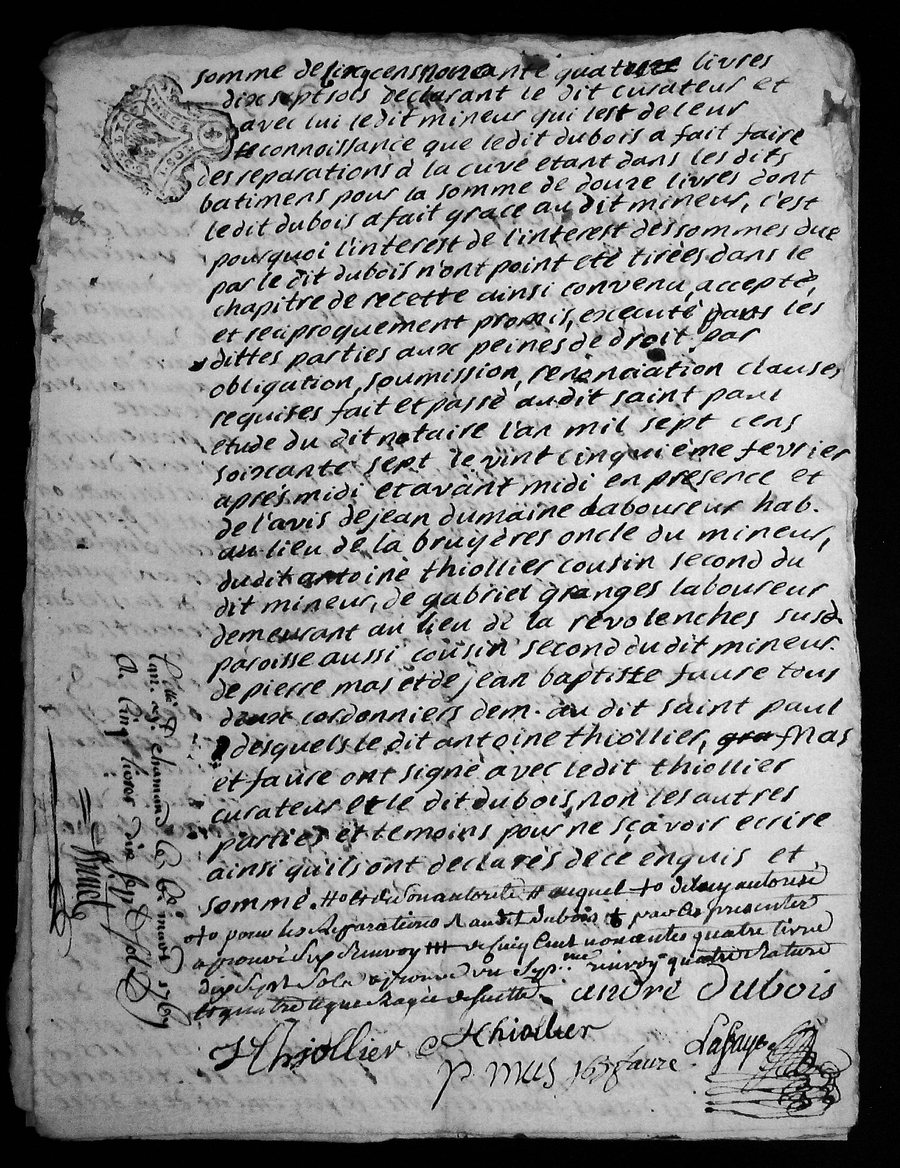 somme de cinq cens nonante quatre livres
dix sept sols declarant le dit curateur et
avec lui ledit mineur qui lest de leur
reconnoissance que ledit dubois a fait faire
des reparations à la cuve étant dans les dits
batimens pour la somme de douze livres dont
ledit dubois a fait grace au dit mineur, c'est
pourquoi l'interest de l'interest des sommes due
par le dit dubois n'ont point eté tirées dans le
chapitre de recette ainsi convenu, accepté,
et reciproquement promis, executé dans les
dittes parties aux peines de droit par
obligation, soumission, renonciation clauses
requises fait et passé audit saint paul
etude du dit notaire l'an mil sept cens
soixcante sept le vint cinquième fevrier
après midi et avant midi en presence et
de l'avis de jean dumaine laboureur hab.
au lieu de la bruyères oncle du mineur,
dudit antoine thiollier cousin second du
dit mineur, de gabriel granges laboureur
demeurant au lieu de la revolenches susd
paroisse aussi cousin second dudit mineur.
de pierre mas et de jean baptiste faure tous
deux cordonniers dem. au dit saint paul
desquels le dit antoine thiollier, gra Mas
et faure ont signé avec ledit thiollier
curateur et le dit dubois, non les autres
parties et temoins pour ne sçavoir ecrire
ainsi quils ont declarés de ce enquis et
sommé. de son autorité auquel
pour les Reparations audit dubois par ces presentes
aprouvé renvoy de cinq cent nonantes quatre livre
dix sept sols aprouvé renvoy quatre Rature
et quatre ligne Rayée
andré Dubois
Thiollier Thiollier Lafaye
p. mas faure
Chamand le mars 1767
cinq livres dix sept sols